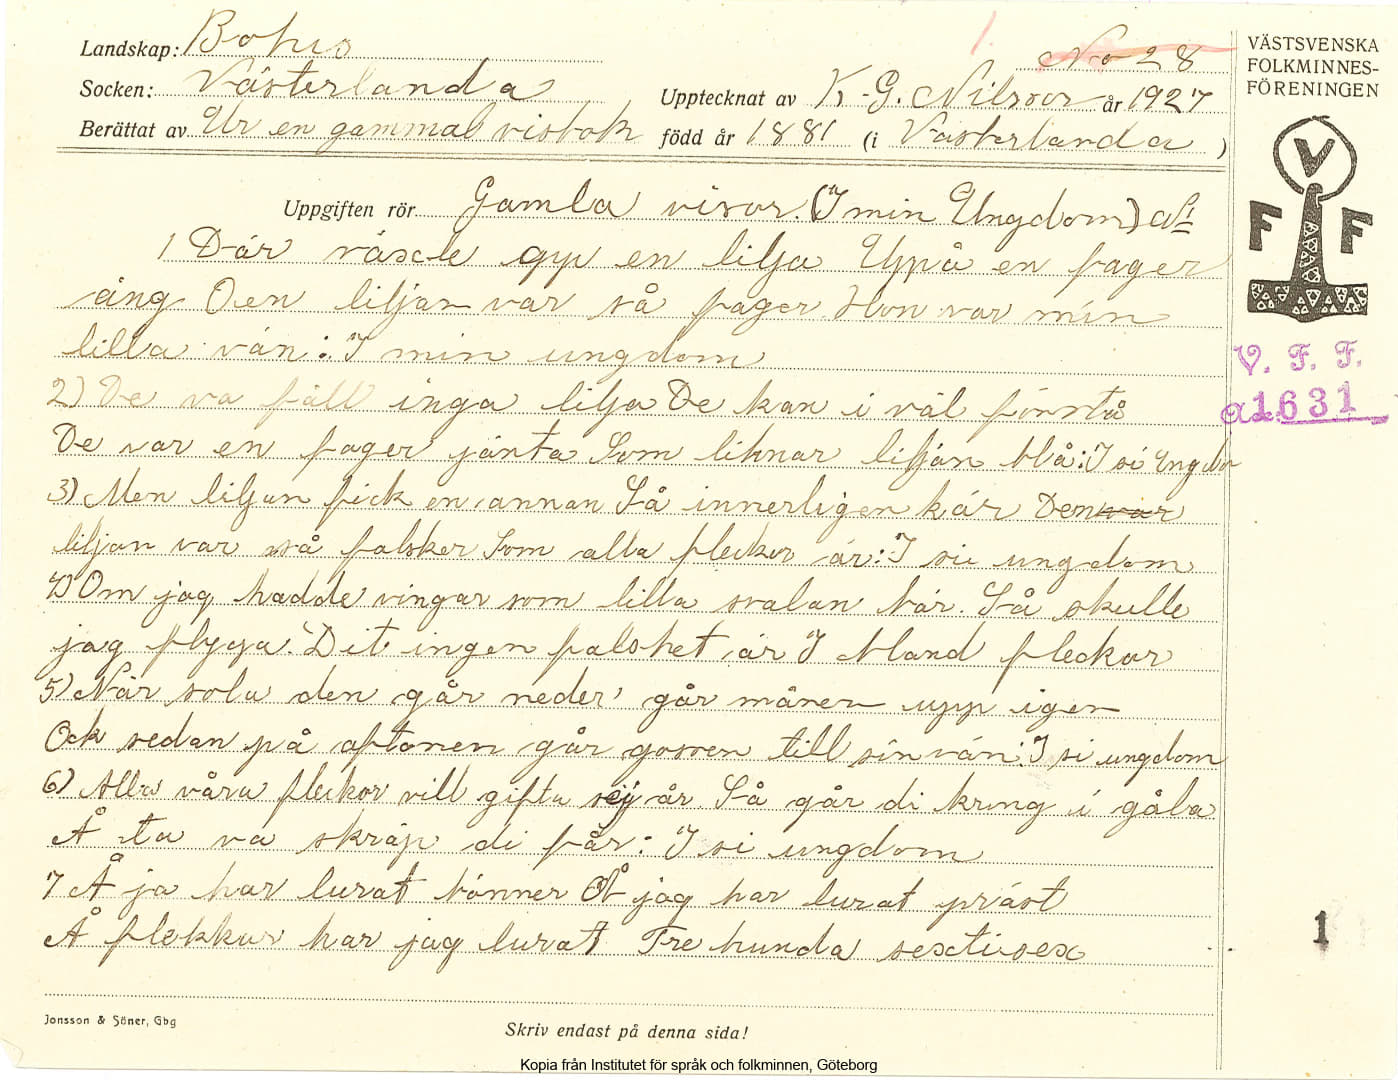 Landskap: Bohus
Socken: Västerlanda
Berättat av Ur en gammal visbok
No 28
Upptecknat av K. G. Nilsson år 1927
född år 1881 (i Västerlanda )
VÄSTSVENSKA
FOLKMINNES-
FÖRENINGEN
V
F F
V. F. F.
a1631
Uppgiften rör Gamla visor. (I min Ungdom)
1 Där växcte opp en lilja Uppå en fager
äng Den liljan var så fager Hon var min
lilla vän: I min ungdom
2) De va fäll inga lilja De kan i väl förstå
De var en fager jänta Som liknar liljan blå: I si Ungdom
3) Men liljan fick en annan Så innerligen kär Den var
liljan var så falsker Som alla fleckor är: I sii ungdom
4) Om jag hadde vingar som lilla svalan bär. Så skulle
jag flyga. Dit ingen falsket är I bland fleckor
5) När sola den går neder går månen upp igen
Ock sedan på aftonen går gossen till sin vän: I si ungdom
6) Alla våra fleckor vill gifta sej i år Så går di kring i gåla
Å ta va skräp di får: I si ungdom
7 Å ja har lurat bönner Å jag har lurat präst
Å flekkur har jag lurat Tre hunda sextisex
1
Jonsson & Söner, Gbg
Skriv endast på denna sida!
Kopia från Institutet för språk och folkminnen, Göteborg